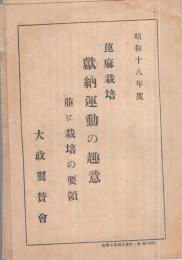 昭和十八年度
蓖麻栽培
獻納運動の趣意
並に栽培の要領
大政翼賛會